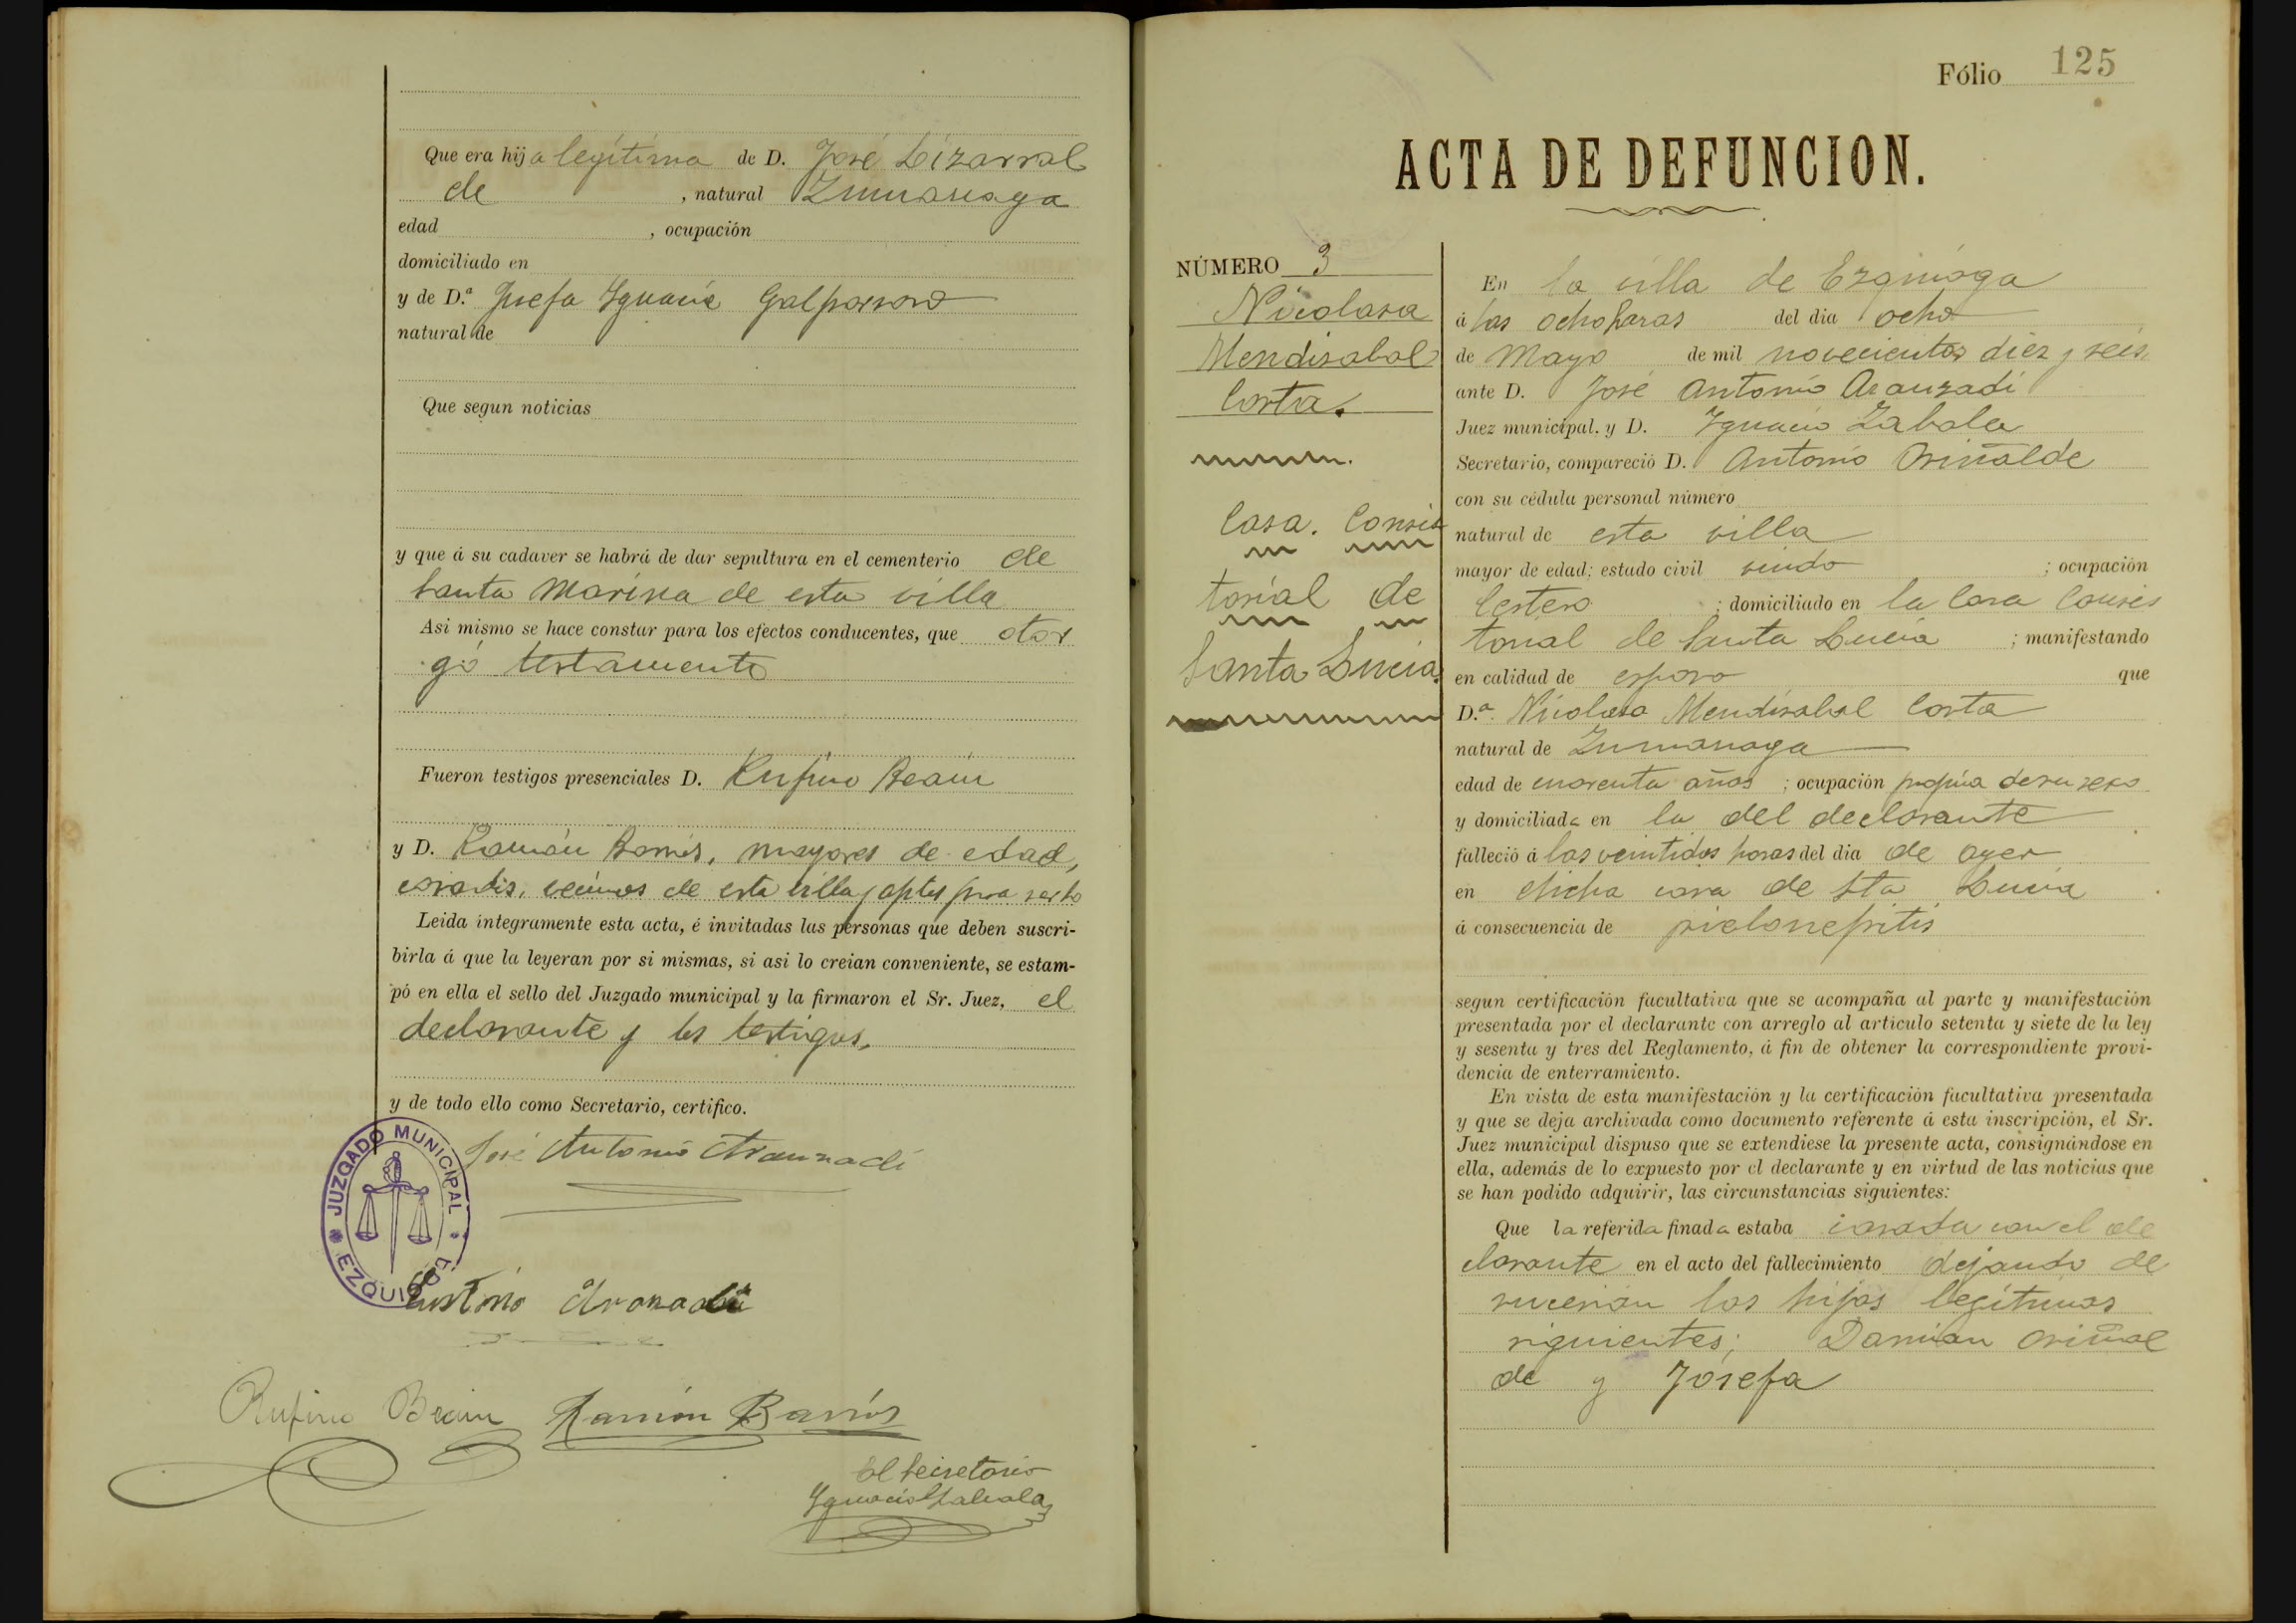 Que era hija legítima de D. José Lizarral
de , natural Zumarraga
edad , ocupación
domiciliado en
y de D.ª Josefa Ygnacia Galparsoro
natural de
Que segun noticias
y que á su cadaver se habrá de dar sepultura en el cementerio de
Santa Marina de esta villa
Asi mismo se hace constar para los efectos conducentes, que otor
gó testamento
Fueron testigos presenciales D. Rufino Beain
y D. Ramón Barrios, mayores de edad,
casados, vecinos de esta villa y aptos para serlo
Leida íntegramente esta acta, é invitadas las personas que deben suscri-
birla á que la leyeran por si mismas, si asi lo creian conveniente, se estam-
pó en ella el sello del Juzgado municipal y la firmaron el Sr. Juez, el
declarante y los testigos.
y de todo ello como Secretario, certifico.
JUZGADO MUNICIPAL
José Antonio Aranzadi
Rufino Beain Ramón Barrios
El Secretario
Ygnacio Zabala
Fólio 125
ACTA DE DEFUNCION.
NÚMERO 3
Nicolasa
Mendizabal
Corta.
Casa. Consis
torial de
Santa Lucia.
En la villa de Ezquioga
á las ocho horas del dia ocho
de Mayo de mil novecientos diez y seis,
ante D. José Antonio Aranzadi
Juez municipal. y D. Ygnacio Zabala
Secretario, compareció D. Antonio Oriñalde
con su cédula personal número
natural de esta villa
mayor de edad; estado civil viudo ; ocupación
Cestero ; domiciliado en la Casa Consis
torial de Santa Lucia ; manifestando
en calidad de esposo que
D.ª Nicolasa Mendizabal Corta
natural de Zumarraga
edad de cuarenta años ; ocupación propia de su sexo
y domiciliada en la del declarante
falleció á las veintidos horas del dia de ayer
en dicha casa de Sta Lucia
á consecuencia de pielonefritis
segun certificación facultativa que se acompaña al parte y manifestación
presentada por el declarante con arreglo al articulo setenta y siete de la ley
y sesenta y tres del Reglamento, á fin de obtener la correspondiente provi-
dencia de enterramiento.
En vista de esta manifestación y la certificación facultativa presentada
y que se deja archivada como documento referente á esta inscripción, el Sr.
Juez municipal dispuso que se extendiese la presente acta, consignándose en
ella, además de lo expuesto por el declarante y en virtud de las noticias que
se han podido adquirir, las circunstancias siguientes:
Que la referida finada estaba casada con el de
clarante en el acto del fallecimiento dejando de
sucesión los hijos legítimos
siguientes; Damian Oriñal
de y Josefa